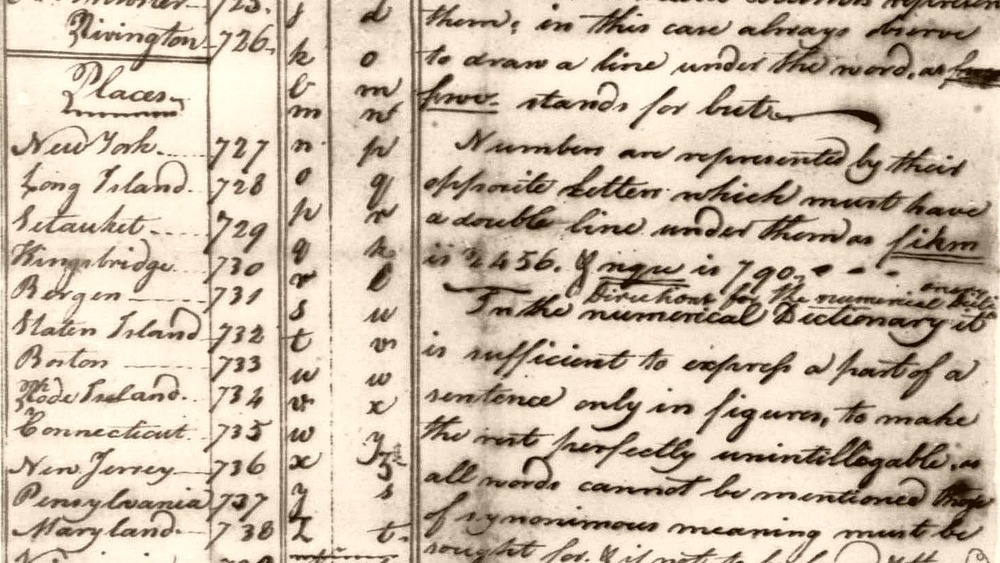 Rivington 726.
Places
New York 727
Long Island 728
Setauket 729
Kingsbridge 730
Bergen 731
Staten Island 732
Boston 733
Rode Island 734
Connecticut 735
New Jersey 736
Pensylvania 737
Maryland 738
d
k o
l m
m n
n p
o q
p r
q k
r l
s u
t v
u w
v x
w y
x z
y s
z t
them; in this case always observe
to draw a line under the word, as
fwv. stands for but
Numbers are represented by their
opposite letters which must have
a double line under them as fikm
is 2456. & nqu is 790.
Directions for the numerical
In the numerical Dictionary it
is sufficient to express a part of a
sentence only in figures, to make
the rest perfectly unintellegable, as
all words cannot be mentioned those
of synonimous meaning must be
sought for. & if not to be